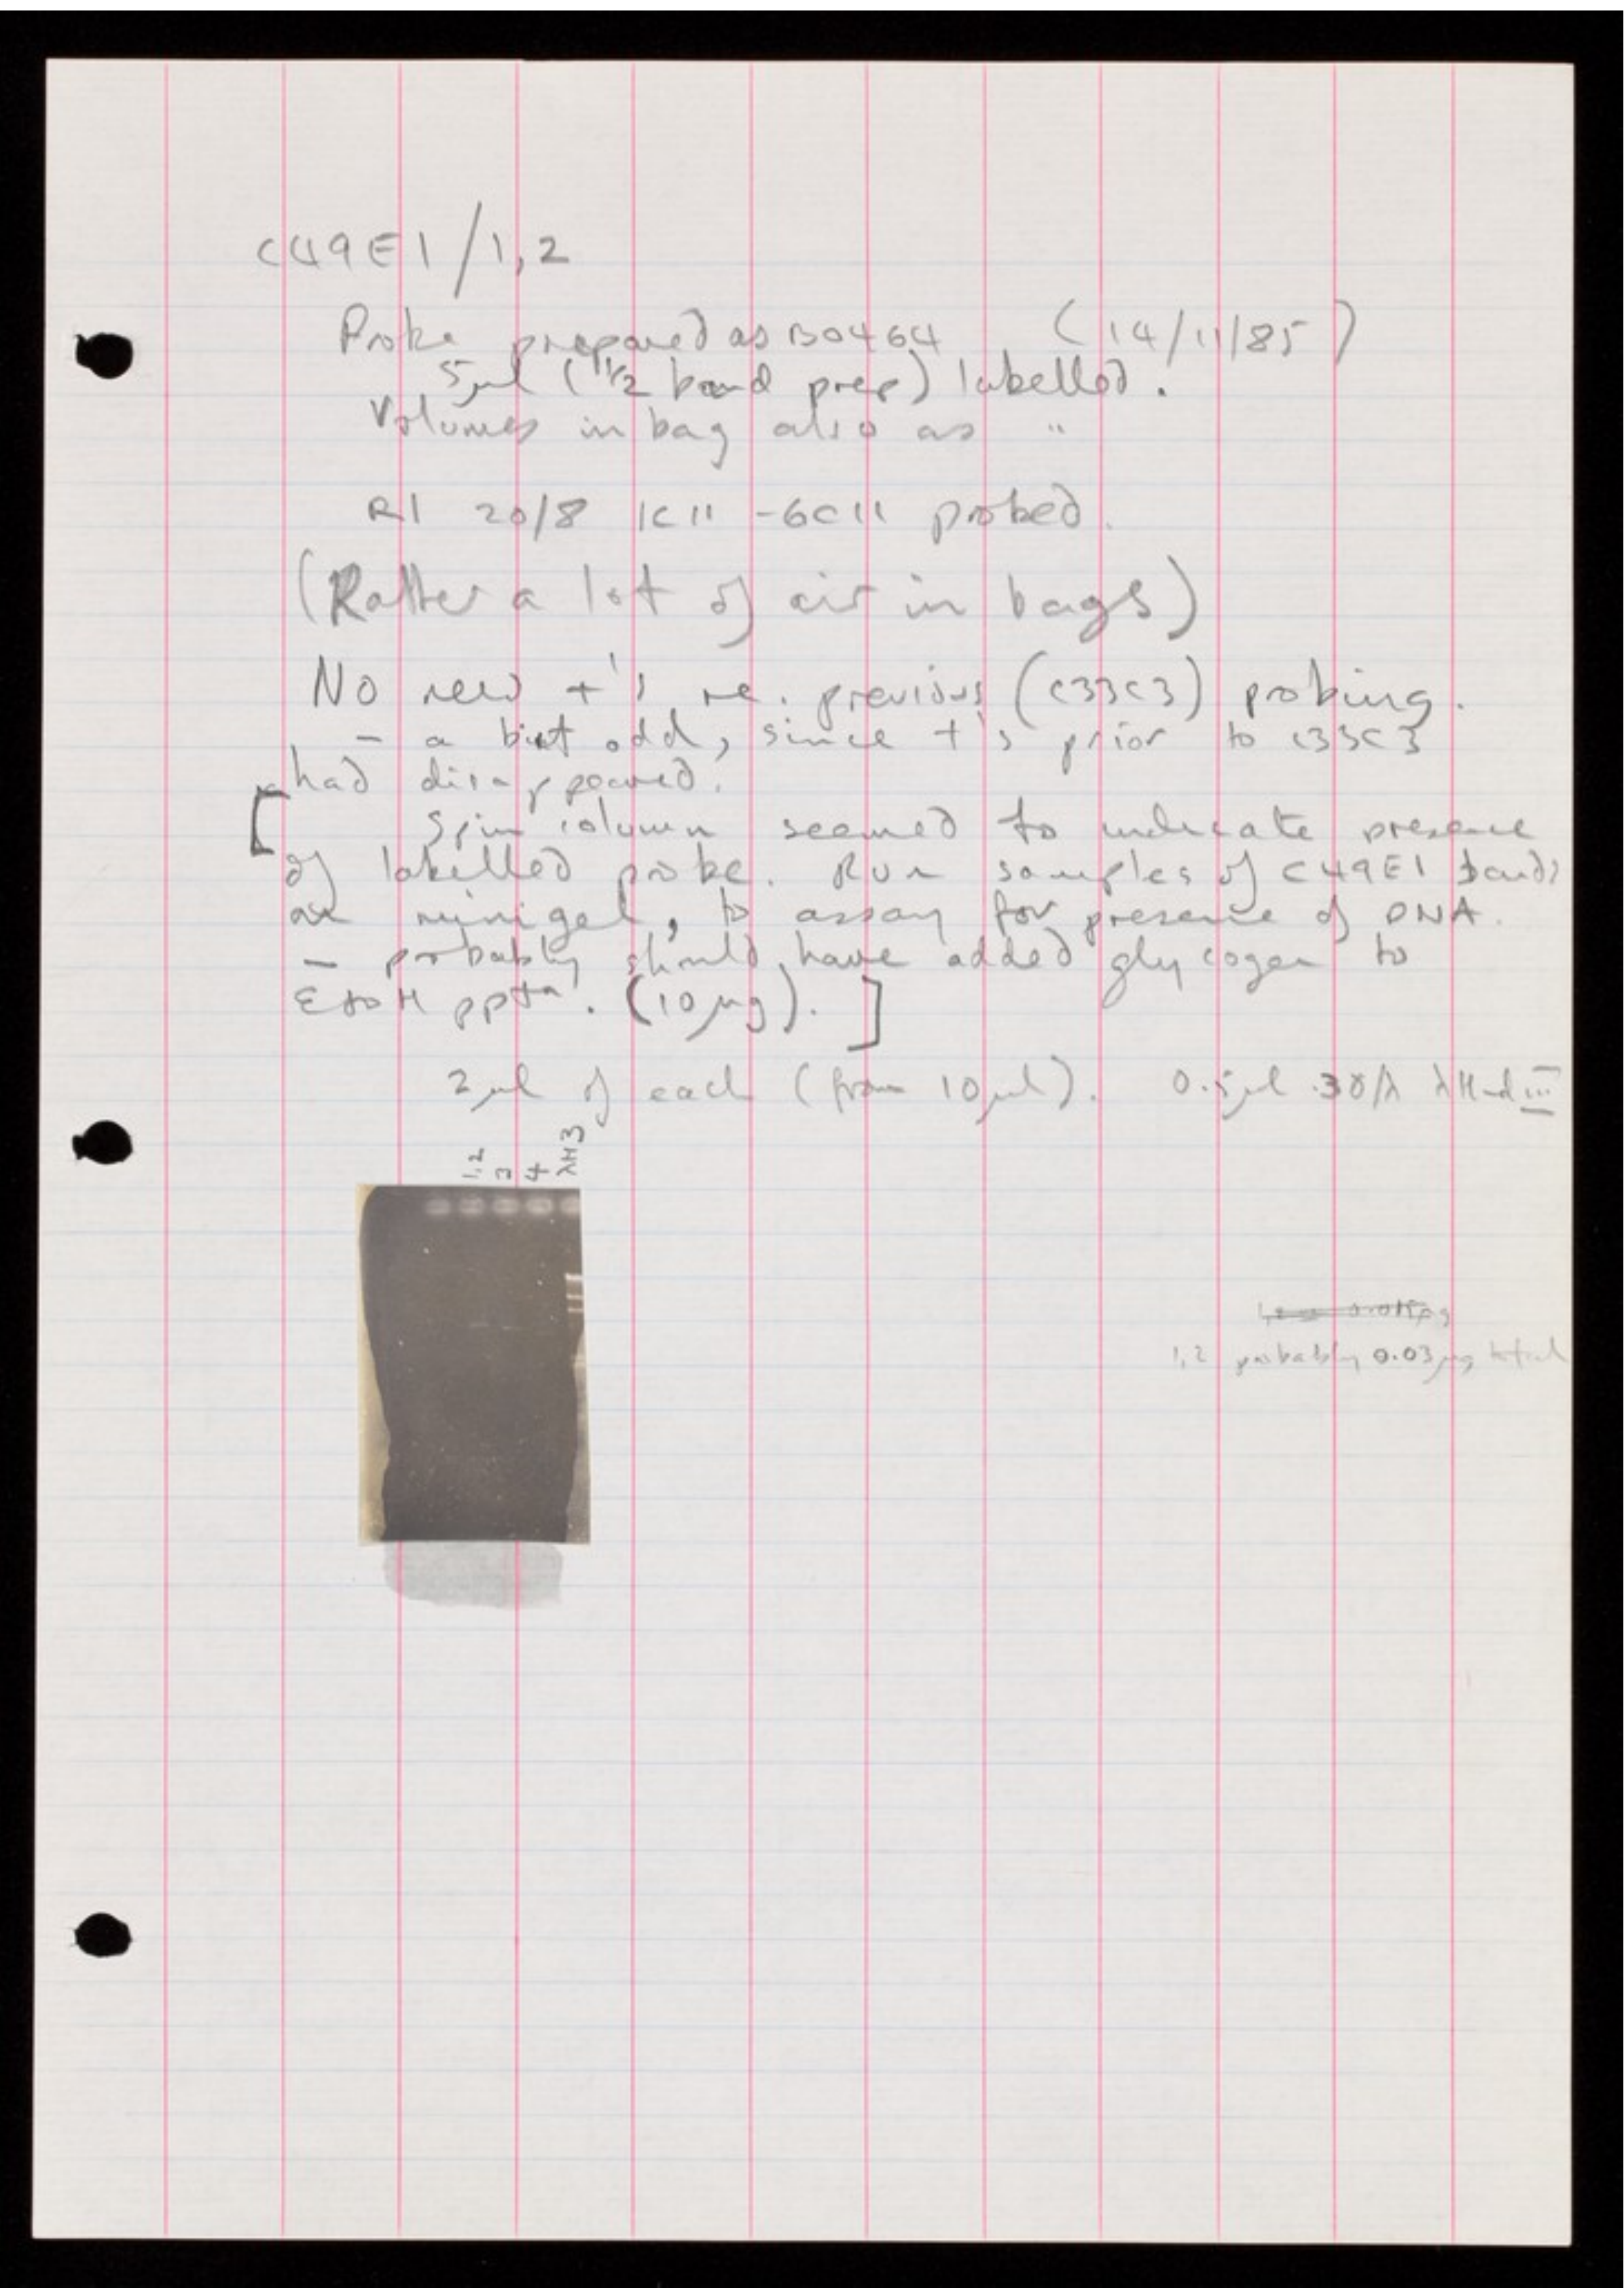 C49E1/1,2
Probe prepared as B0464 (14/11/85)
5µl (1/2 band prep) labelled.
Volumes in bag also as "
RI 20/8 1C11 - 6C11 probed.
(Rather a lot of air in bags)
No new +'s re. previous (C33C3) probing.
- a bit odd, since +'s prior to C33C3
had disappeared.
[ Spin column seemed to indicate presence
of labelled probe. Run samples of C49E1 bands
on minigel, to assay for presence of DNA.
- probably should have added glycogen to
EtOH pptn. (10µg). ]
2µl of each (from 10µl). 0.5µl λHind III
1,2 3 4 λH3
1,2 probably 0.03µg total